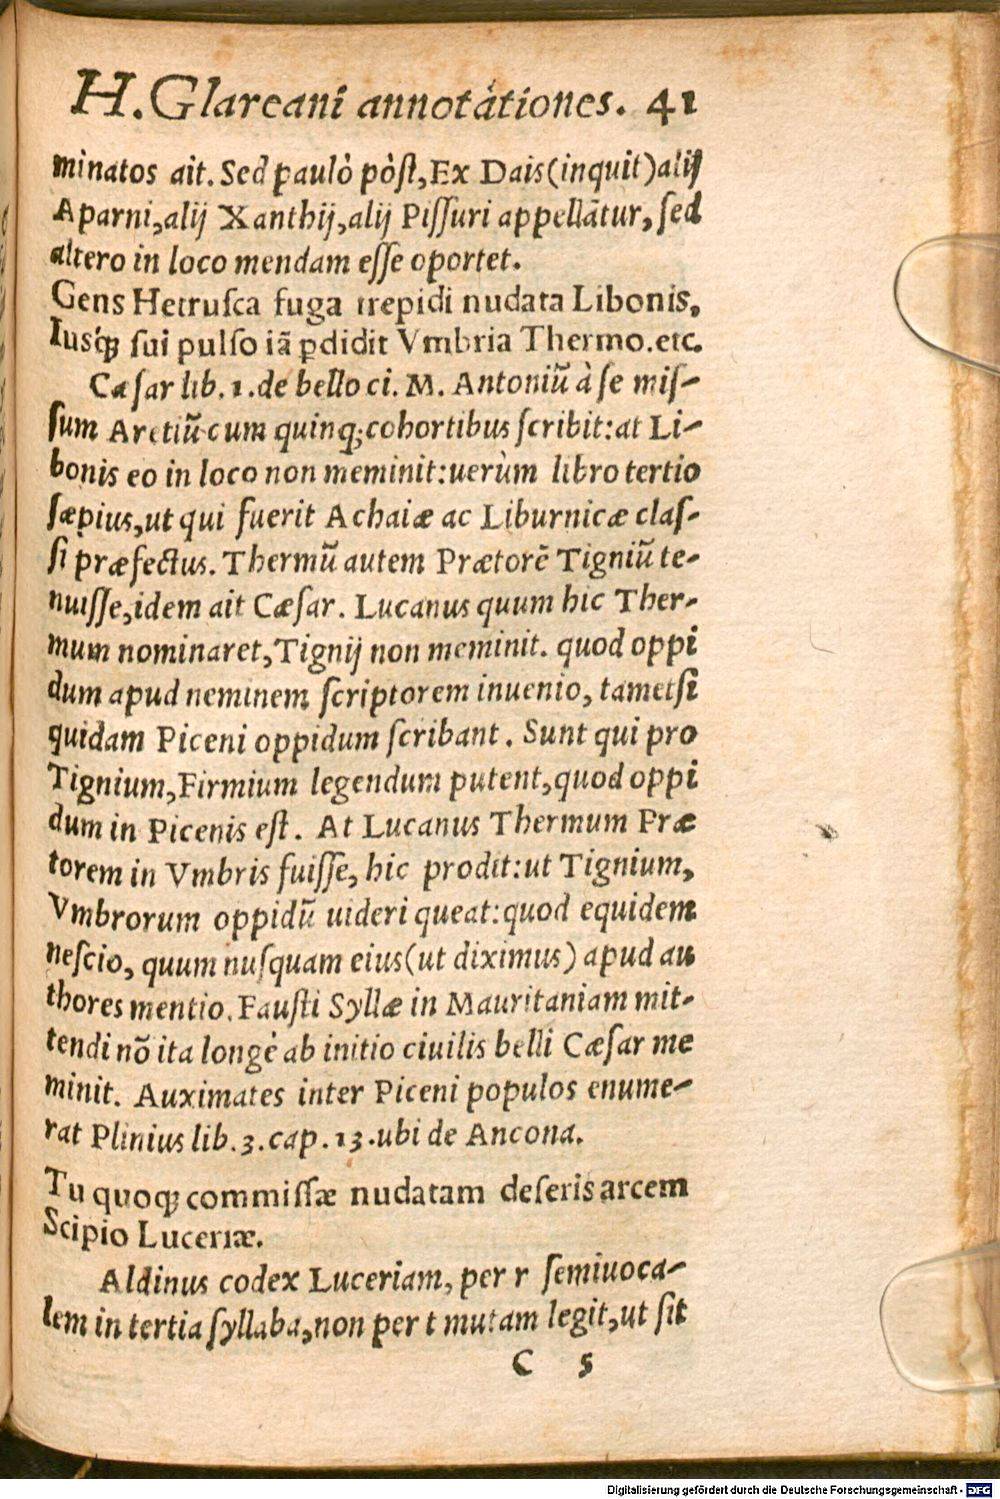 H. Glareani annotātiones. 41
minatos ait. Sed paulò pòſt, Ex Dais (inquit) alij
Aparni, alij Xanthij, alij Piſſuri appellātur, ſed
altero in loco mendam eſſe oportet.
Gens Hetruſca fuga trepidi nudata Libonis,
Iusq́ꝫ ſui pulſo iā ꝑdidit Vmbria Thermo. etc.
Cæſar lib. 1. de bello ci. M. Antoniũ à ſe miſ-
ſum Aretiũ cum quinqꝫ cohortibus ſcribit: at Li-
bonis eo in loco non meminit: uerùm libro tertio
ſæpius, ut qui fuerit Achaiæ ac Liburnicæ claſ-
ſi præfectus. Thermũ autem Prætorẽ Tigniũ te-
nuiſſe, idem ait Cæſar. Lucanus quum hic Ther-
mum nominaret, Tignij non meminit. quod oppi
dum apud neminem ſcriptorem inuenio, tametſi
quidam Piceni oppidum ſcribant. Sunt qui pro
Tignium, Firmium legendum putent, quod oppi
dum in Picenis eſt. At Lucanus Thermum Præ
torem in Vmbris fuiſſe, hic prodit: ut Tignium,
Vmbrorum oppidũ uideri queat: quod equidem
neſcio, quum nuſquam eius (ut diximus) apud au
thores mentio. Fauſti Syllæ in Mauritaniam mit-
tendi nõ ita longè ab initio ciuilis belli Cæſar me
minit. Auximates inter Piceni populos enume-
rat Plinius lib. 3. cap. 13. ubi de Ancona.
Tu quoqꝫ commiſſæ nudatam deſeris arcem
Scipio Luceriæ.
Aldinus codex Luceriam, per r ſemiuoca-
lem in tertia ſyllaba, non per t mutam legit, ut ſit
C 5
Digitalisierung gefördert durch die Deutsche Forschungsgemeinschaft - DFG